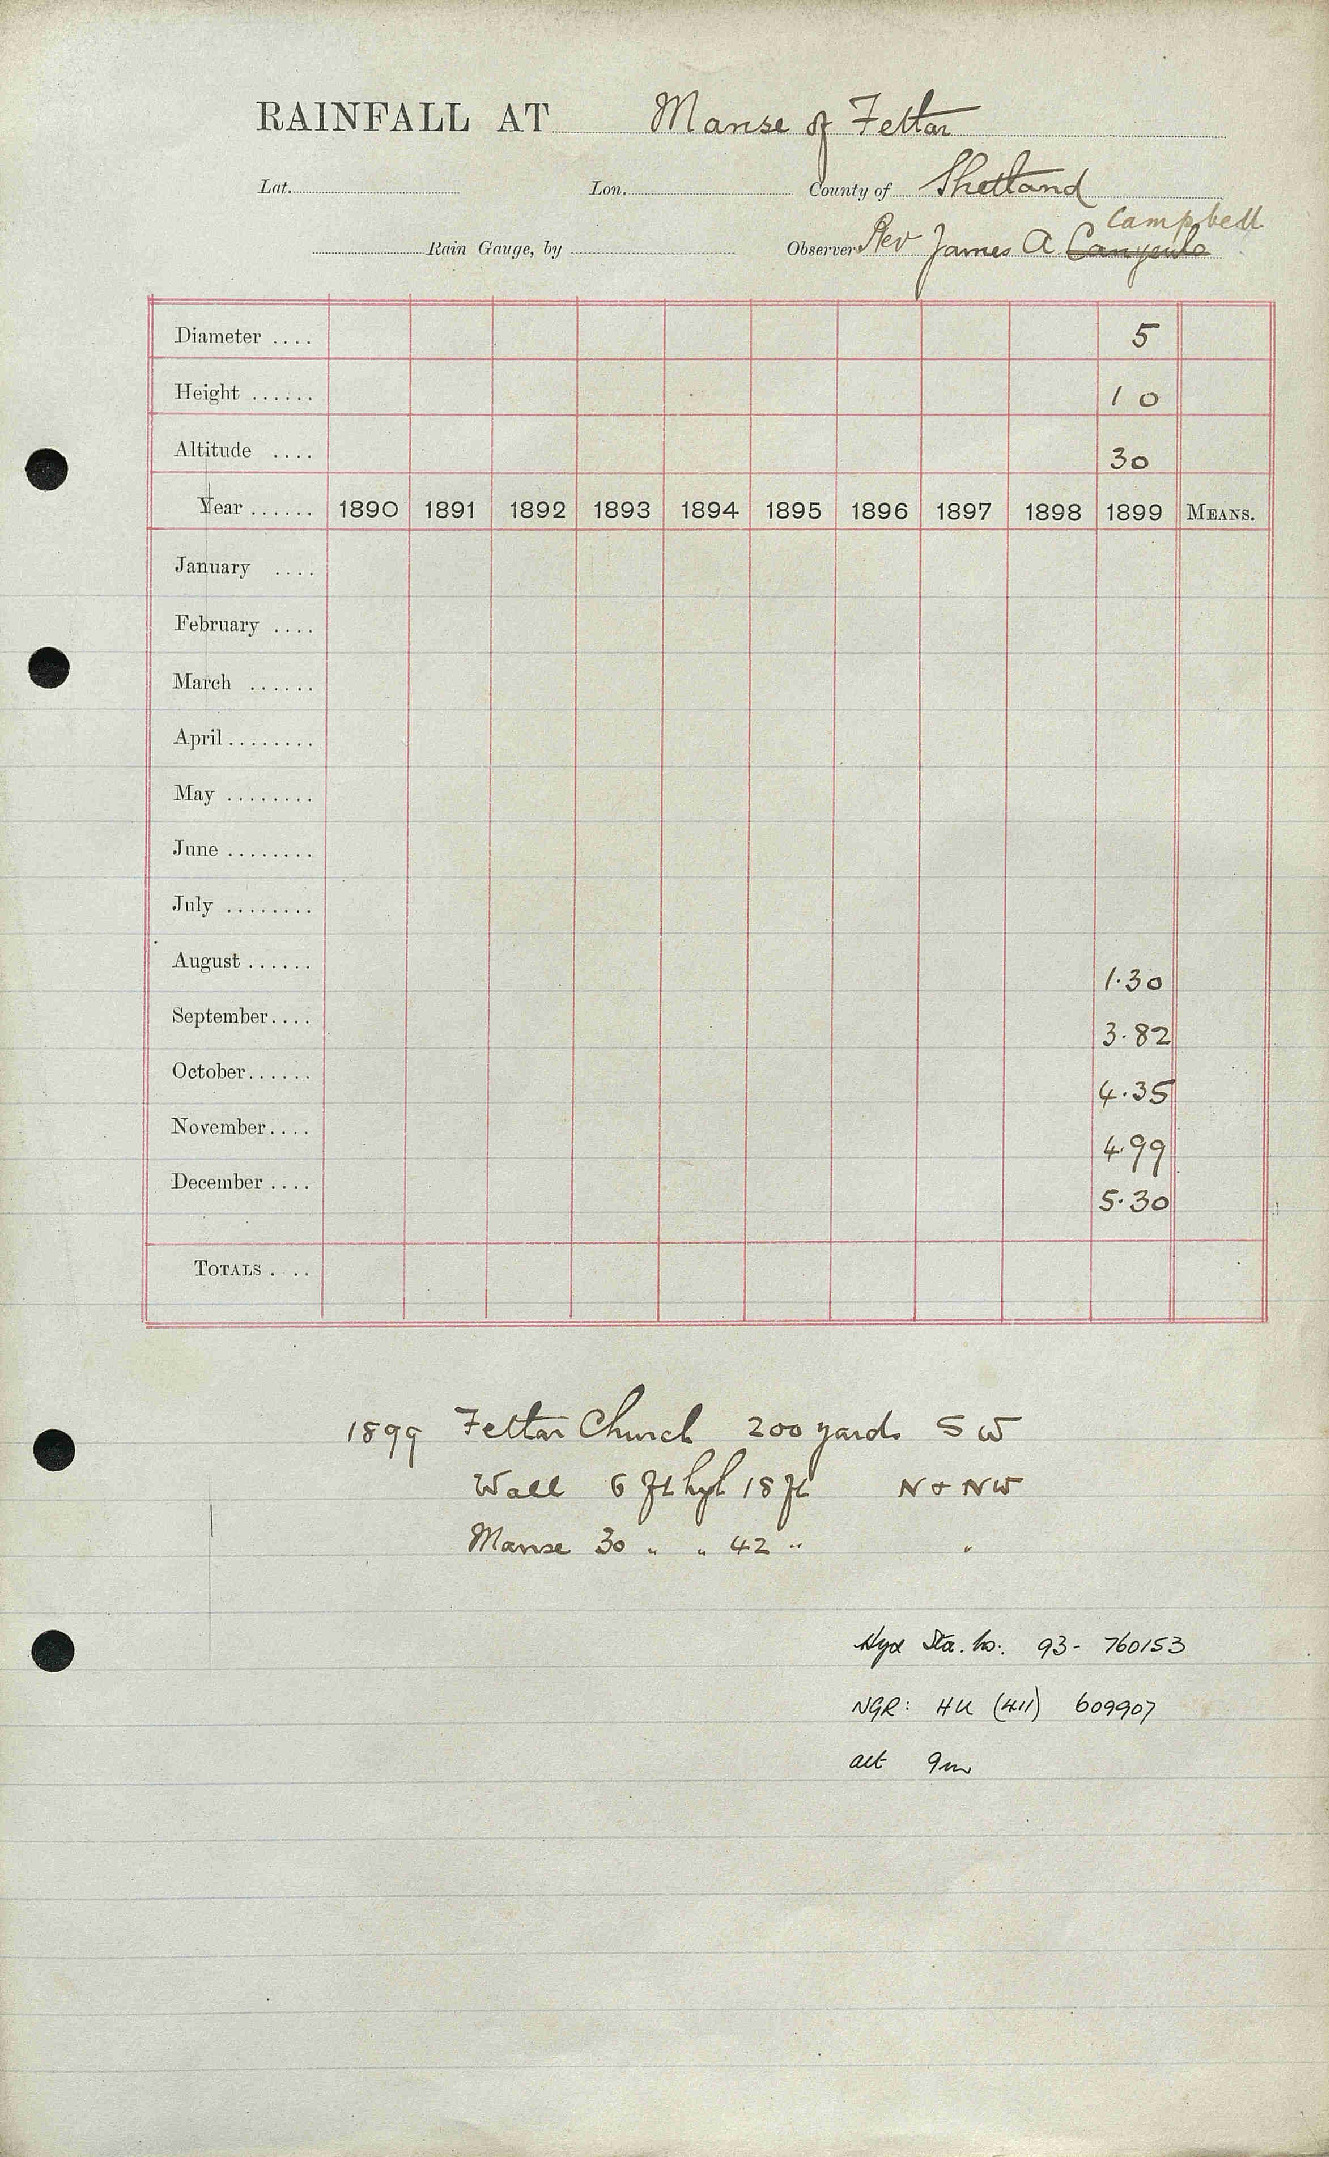 RAINFALL AT Manse of Fettar
Lat. Lon. County of Shetland
Campbell
Rain Gauge, by Observer Rev James A
Diameter .... 5
Height ...... 1 0
Altitude .... 30
Year ...... 1890 1891 1892 1893 1894 1895 1896 1897 1898 1899 MEANS.
January ....
February ....
March ......
April ........
May ........
June ........
July ........
August ...... 1.30
September.... 3.82
October...... 4.35
November.... 4.99
December .... 5.30
TOTALS ....
1899 Fettar Church 200 yards SW
Wall 6 ft high 18 ft N & NW
Manse 30 " " 42 " "
Sta. No: 93- 760153
NGR: HU (411) 609907
alt 9m